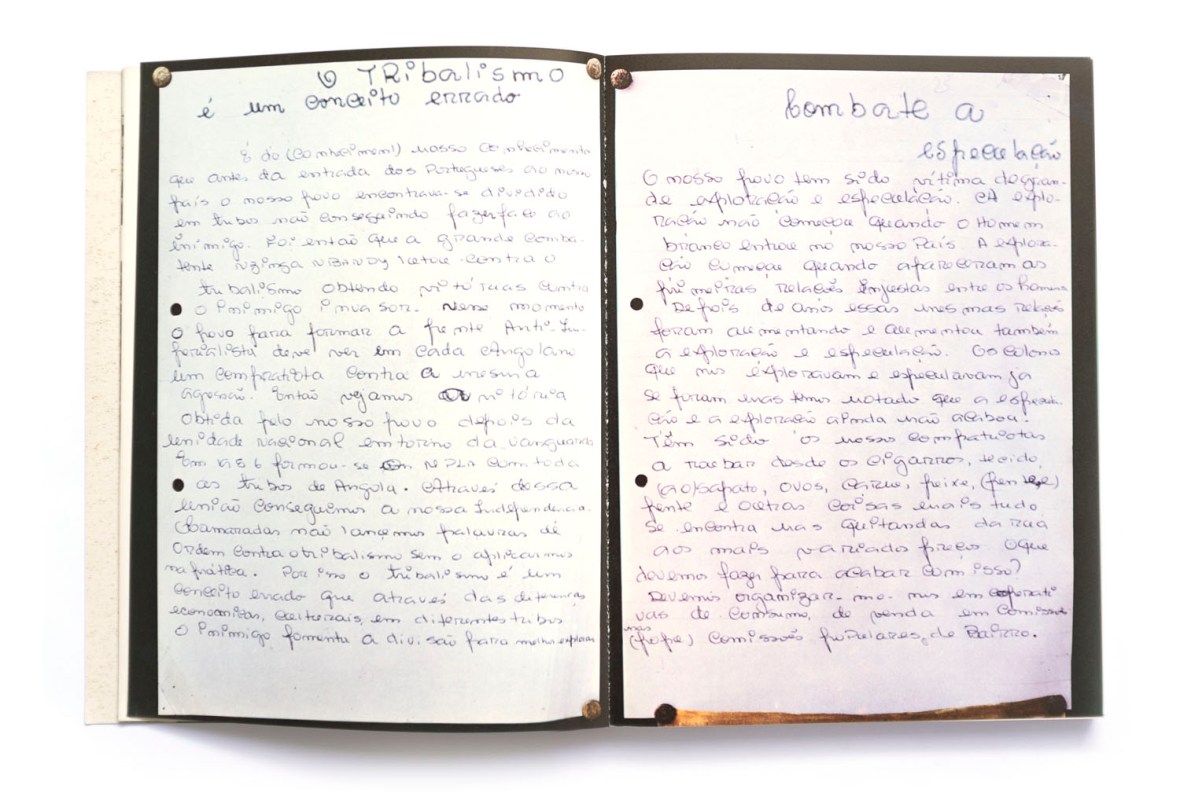 O TRibalismo
é um conceito errado
É do (conhecimen!) nosso conhecimento
que antes da entrada dos Portugueses ao nosso
país o nosso povo encontrava-se dividido
em tribus não conseguindo fazer face ao
inimigo. Foi então que a grande comba-
tente Nzinga NBANDY contra o
tribalismo obtendo vitórias contra
o inimigo invasor. Nesse momento
o povo para formar a frente Anti-Im-
perialista deve ver em cada Angolano
um compratiota contra a mesma
agressão. Então vejamos a vitória
obtida pelo nosso povo depois da
unidade nacional em torno da vanguarda
Em 1956 formou-se o MPLA com toda
as tribos de Angola. Através dessa
união conseguimos a nossa Independencia.
Camaradas não lancemos palavras de
Ordem contra o tribalismo sem o aplicarmos
na prática. Por isso o tribalismo é um
conceito errado que através das diferenças
economicas, culturais, em diferentes tribos
o inimigo fomenta a divisão para melhor explorar
Combate a
especulação
O nosso povo tem sido vítima de gran-
de exploração e especulação. A explo-
ração não começou quando o Homem
branco entrou no nosso País. A explora-
ção começou quando apareceram as
primeiras relações injustas entre os homens
Depois de anos essas mesmas relações
foram aumentando e aumentou também
a exploração e especulação. Os colonos
que nos exploravam e especulavam ja
se foram mas temos notado que a especula-
ção e a exploração ainda não acabou.
Têm sido os nosso compatriotas
a roubar desde os cigarros, tecido,
(ao) sapato, ovos, carne, peixe,
pente e outras coisas mais tudo
se encontra nas quitandas da rua
aos mais variados preços O que
devemos fazer para acabar com isso?
Devemos organizar-mo-nos em cooperati
vas de consumo, de venda em comissões
nas (pope) comissões populares de Bairro.